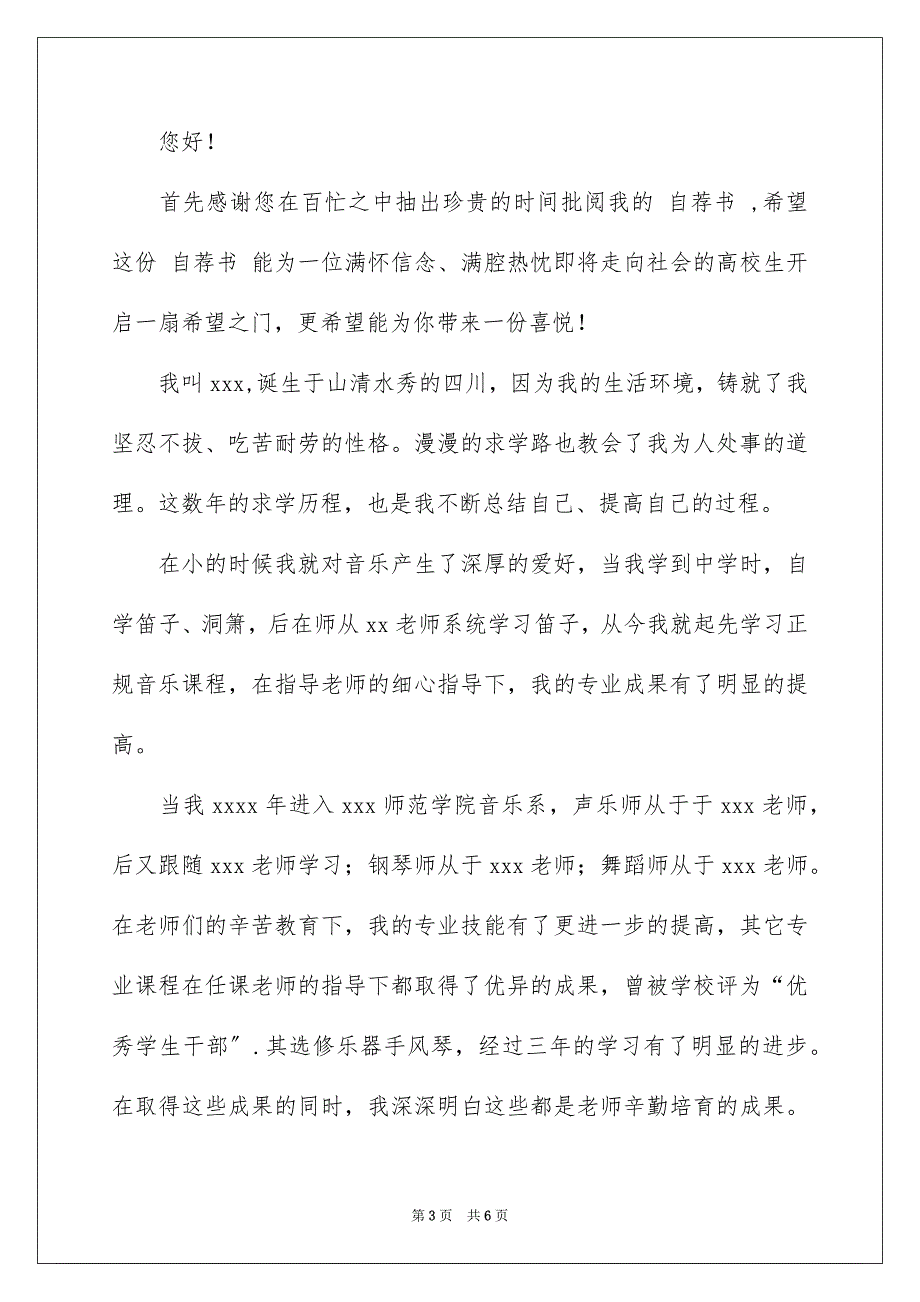 您好！
首先感谢您在百忙之中抽出珍贵的时间批阅我的 自荐书 ,希望
这份 自荐书 能为一位满怀信念、满腔热忱即将走向社会的高校生开
启一扇希望之门，更希望能为你带来一份喜悦！
我叫 xxx,诞生于山清水秀的四川，因为我的生活环境，铸就了我
坚忍不拔、吃苦耐劳的性格。漫漫的求学路也教会了我为人处事的道
理。这数年的求学历程，也是我不断总结自己、提高自己的过程。
在小的时候我就对音乐产生了深厚的爱好，当我学到中学时，自
学笛子、洞箫，后在师从 xx 老师系统学习笛子，从今我就起先学习正
规音乐课程，在指导老师的细心指导下，我的专业成果有了明显的提
高。
当我 xxxx 年进入 xxx 师范学院音乐系，声乐师从于于 xxx 老师，
后又跟随 xxx 老师学习；钢琴师从于 xxx 老师；舞蹈师从于 xxx 老师。
在老师们的辛苦教育下，我的专业技能有了更进一步的提高，其它专
业课程在任课老师的指导下都取得了优异的成果，曾被学校评为“优
秀学生干部〞.其选修乐器手风琴，经过三年的学习有了明显的进步。
在取得这些成果的同时，我深深明白这些都是老师辛勤培育的成果。
第 3 页 共 6 页